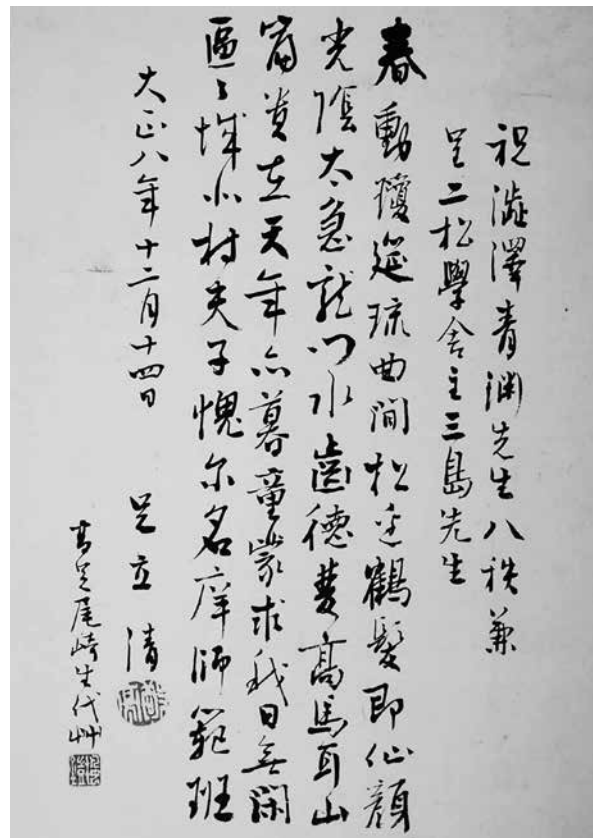 祝澁澤青渊先生八秩兼
呈二松學舎主三島先生
春動瓊筵琉曲間松迎鶴髮即仙顔
光陰太急龍門水齒德雙高馬耳山
富貴在天年亦暮童蒙求我日無閑
區々誠小村夫子愧尔名庠師範班
大正八年十二月十四日 足立清
高足尾崎生代艸